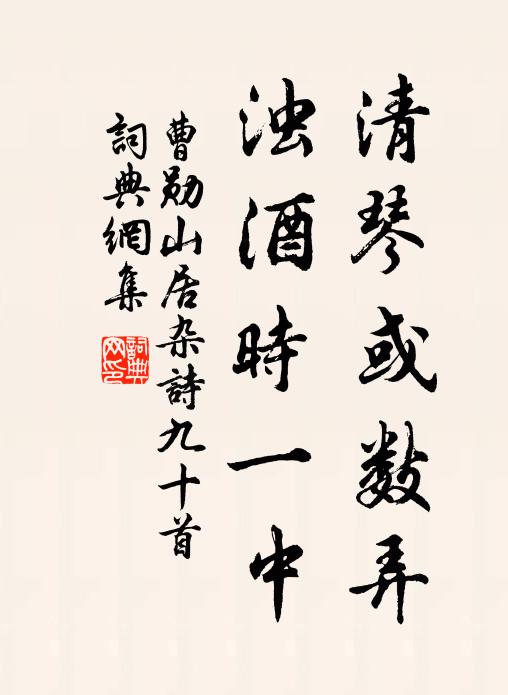 清琴或数弄
浊酒時一中
曹勋山居杂詩九十首
詞典網集
詞典
网印